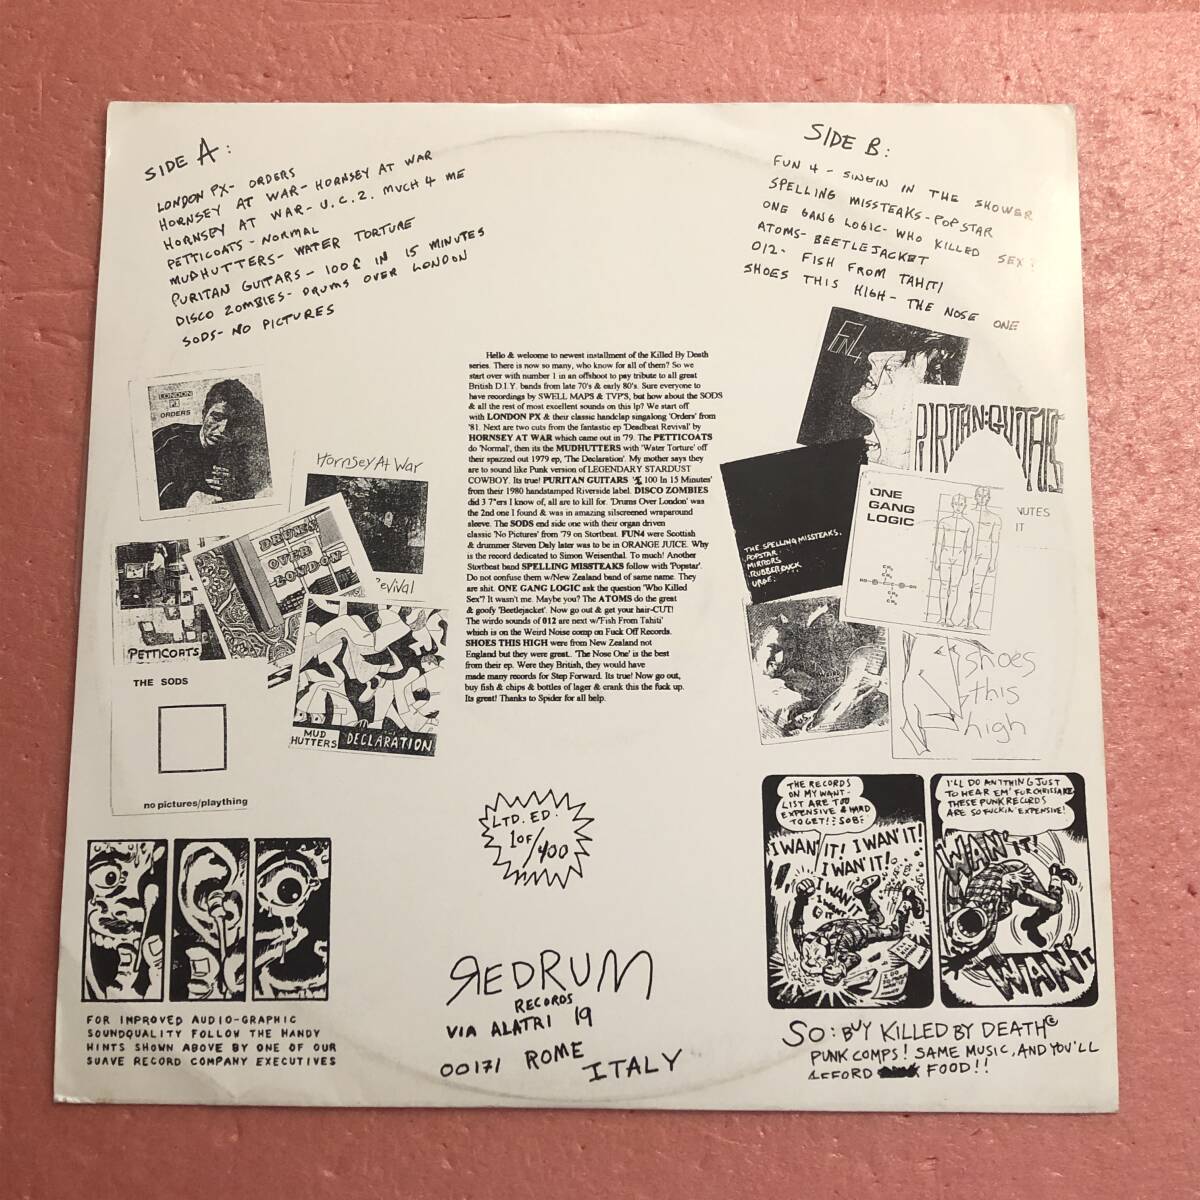 SIDE A:
LONDON PX- ORDERS
HORNSEY AT WAR- HORNSEY AT WAR
HORNSEY AT WAR- U.C.2. MUCH 4 ME
PETTICOATS - NORMAL
MUDHUTTERS- WATER TORTURE
PURITAN GUITARS - 100£ IN 15 MINUTES
DISCO ZOMBIES- DRUMS OVER LONDON
SODS- NO PICTURES
SIDE B:
FUN 4 - SINGIN IN THE SHOWER
SPELLING MISSTEAKS- POPSTAR
ONE GANG LOGIC- WHO KILLED SEX?
ATOMS- BEETLEJACKET
012- FISH FROM TAHITI
SHOES THIS HIGH - THE NOSE ONE
Hello & welcome to newest installment of the Killed By Death
series. There is now so many, who know for all of them? So we
start over with number 1 in an offshoot to pay tribute to all great
British D.I.Y. bands from late 70's & early 80's. Sure everyone to
have recordings by SWELL MAPS & TVP'S, but how about the SODS
& all the rest of most excellent sounds on this lp? We start off
with LONDON PX & their classic handclap singalong 'Orders' from
'81. Next are two cuts from the fantastic ep 'Deadbeat Revival' by
HORNSEY AT WAR which came out in '79. The PETTICOATS
do 'Normal', then its the MUDHUTTERS with 'Water Torture' off
their spazzed out 1979 ep, 'The Declaration'. My mother says they
are to sound like Punk version of LEGENDARY STARDUST
COWBOY. Its true! PURITAN GUITARS '£ 100 In 15 Minutes'
from their 1980 handstamped Riverside label. DISCO ZOMBIES
did 3 7"ers I know of, all are to kill for. 'Drums Over London' was
the 2nd one I found & was in amazing silscreened wraparound
sleeve. The SODS end side one with their organ driven
classic 'No Pictures' from '79 on Stortbeat. FUN4 were Scottish
& drummer Steven Daly later was to be in ORANGE JUICE. Why
is the record dedicated to Simon Weisenthal. To much! Another
Stortbeat band SPELLING MISSTEAKS follow with 'Popstar'.
Do not confuse them w/New Zealand band of same name. They
are shit. ONE GANG LOGIC ask the question 'Who Killed
Sex'? It wasn't me. Maybe you? The ATOMS do the great
& goofy 'Beetlejacket'. Now go out & get your hair-CUT!
The wirdo sounds of 012 are next w/'Fish From Tahiti'
which is on the Weird Noise comp on Fuck Off Records.
SHOES THIS HIGH were from New Zealand not
England but they were great.. 'The Nose One' is the best
from their ep. Were they British, they would have
made many records for Step Forward. Its true! Now go out,
buy fish & chips & bottles of lager & crank this the fuck up.
Its great! Thanks to Spider for all help.
LONDON
PX
ORDERS
Hornsey At War
DRUMS
OVER
LONDON
evival
PETTICOATS
THE SODS
no pictures/plaything
MUD
HUTTERS
DECLARATION
FUN
4
PURITAN:GUITARS
ONE
GANG
LOGIC
NUTES
IT
THE SPELLING MISSTEAKS.
POPSTAR
MIRRORS
RUBBER DUCK
URGE.
shoes
this
high
LTD. ED.
1 OF/400
REDRUM
RECORDS
VIA ALATRI 19
00171 ROME
ITALY
FOR IMPROVED AUDIO-GRAPHIC
SOUNDQUALITY FOLLOW THE HANDY
HINTS SHOWN ABOVE BY ONE OF OUR
SUAVE RECORD COMPANY EXECUTIVES
THE RECORDS
ON MY WANT-
LIST ARE TOO
EXPENSIVE & HARD
TO GET! :SOB:
I WAN' IT! I WAN' IT!
I WAN' IT!
I WAN' IT
I WANT
IT
I'LL DO ANYTHING JUST
TO HEAR EM' FUR CHRISSAKE
THESE PUNK RECORDS
ARE SO FUCKIN' EXPENSIVE!
WAN' IT!
WAN' IT
SO: BUY KILLED BY DEATH©
PUNK COMPS! SAME MUSIC, AND YOU'LL
AFFORD FOOD!!